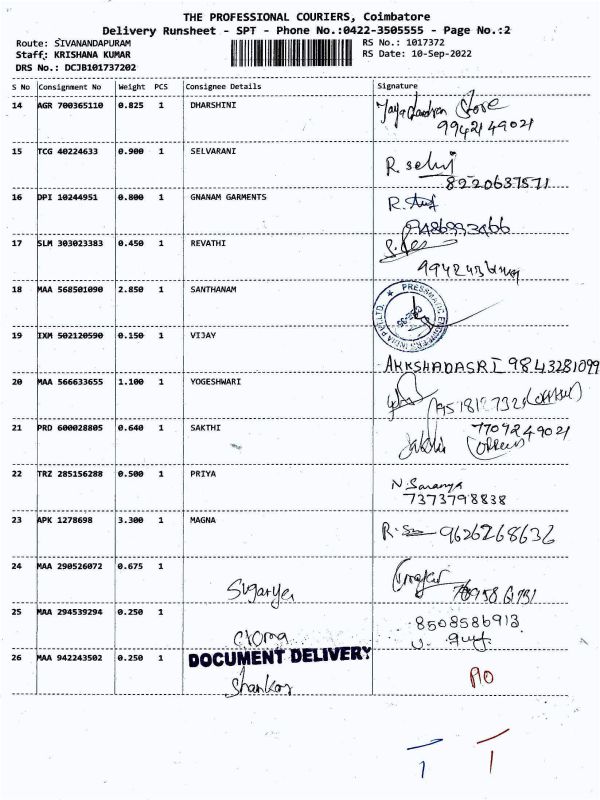 THE PROFESSIONAL COURIERS, Coimbatore
Delivery Runsheet - SPT - Phone No.:0422-3505555 - Page No.:2
Route: SIVANANDAPURAM
RS No.: 1017372
Staff: KRISHANA KUMAR
RS Date: 10-Sep-2022
DRS No.: DCJB101737202
S No Consignment No Weight PCS Consignee Details Signature
14 AGR 700365110 0.825 1 DHARSHINI
Store
9942149021
15 TCG 40224633 0.900 1 SELVARANI
R. selvi
8220637571
16 DPI 10244951 0.800 1 GNANAM GARMENTS
R.
9486993466
17 SLM 303023383 0.450 1 REVATHI
18 MAA 568501090 2.850 1 SANTHANAM
PRESSMATIC ENGINEERS INDIA PVT LTD.
19 IXM 502120590 0.150 1 VIJAY
AKKSHADASRI 9843281099
20 MAA 566633655 1.100 1 YOGESHWARI
21 PRD 600028805 0.640 1 SAKTHI
7709249021
22 TRZ 285156288 0.500 1 PRIYA
N. Saranya
7373798838
23 APK 1278698 3.300 1 MAGNA
9626268636
24 MAA 290526072 0.675 1
25 MAA 294539294 0.250 1
8508586913
Croma
DOCUMENT DELIVERY
26 MAA 942243502 0.250 1
Shankar